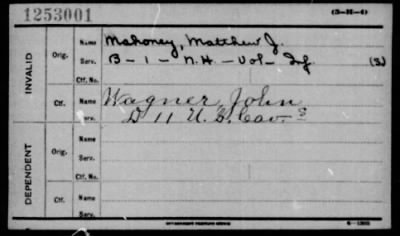 1253001
(3-H-4)
INVALID
Orig.
Name Mahoney, Matthew J.
Serv. B - 1 - N.H. - Vol - Inf (3)
Ctf. No.
Ctf.
Name Wagner, John
Serv. D 11 U.S. Cav. S
DEPENDENT
Orig.
Name
Serv.
Ctf. No.
Ctf.
Name
Serv.